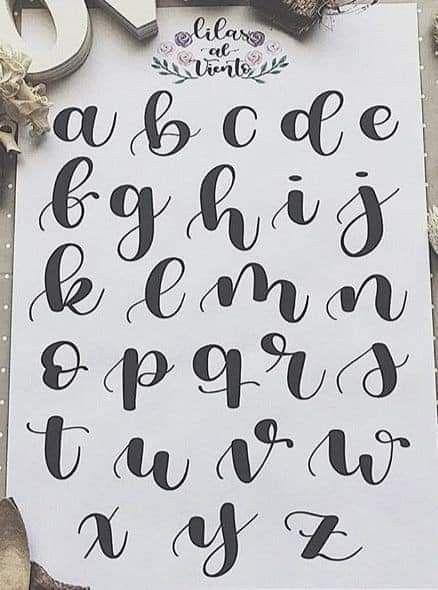 lilas
al
Viento
a b c d e
f g h i j
k l m n
o p q r s
t u v w
x y z